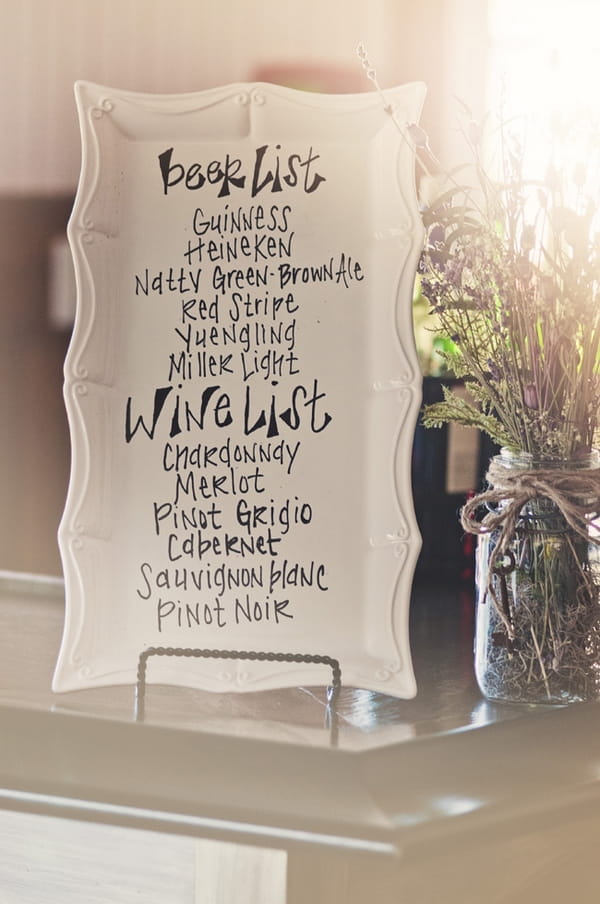 beer List
Guinness
Heineken
Natty Green-Brown Ale
Red Stripe
Yuengling
Miller Light
Wine List
Chardonnay
Merlot
Pinot Grigio
Cabernet
Sauvignon blanc
Pinot Noir